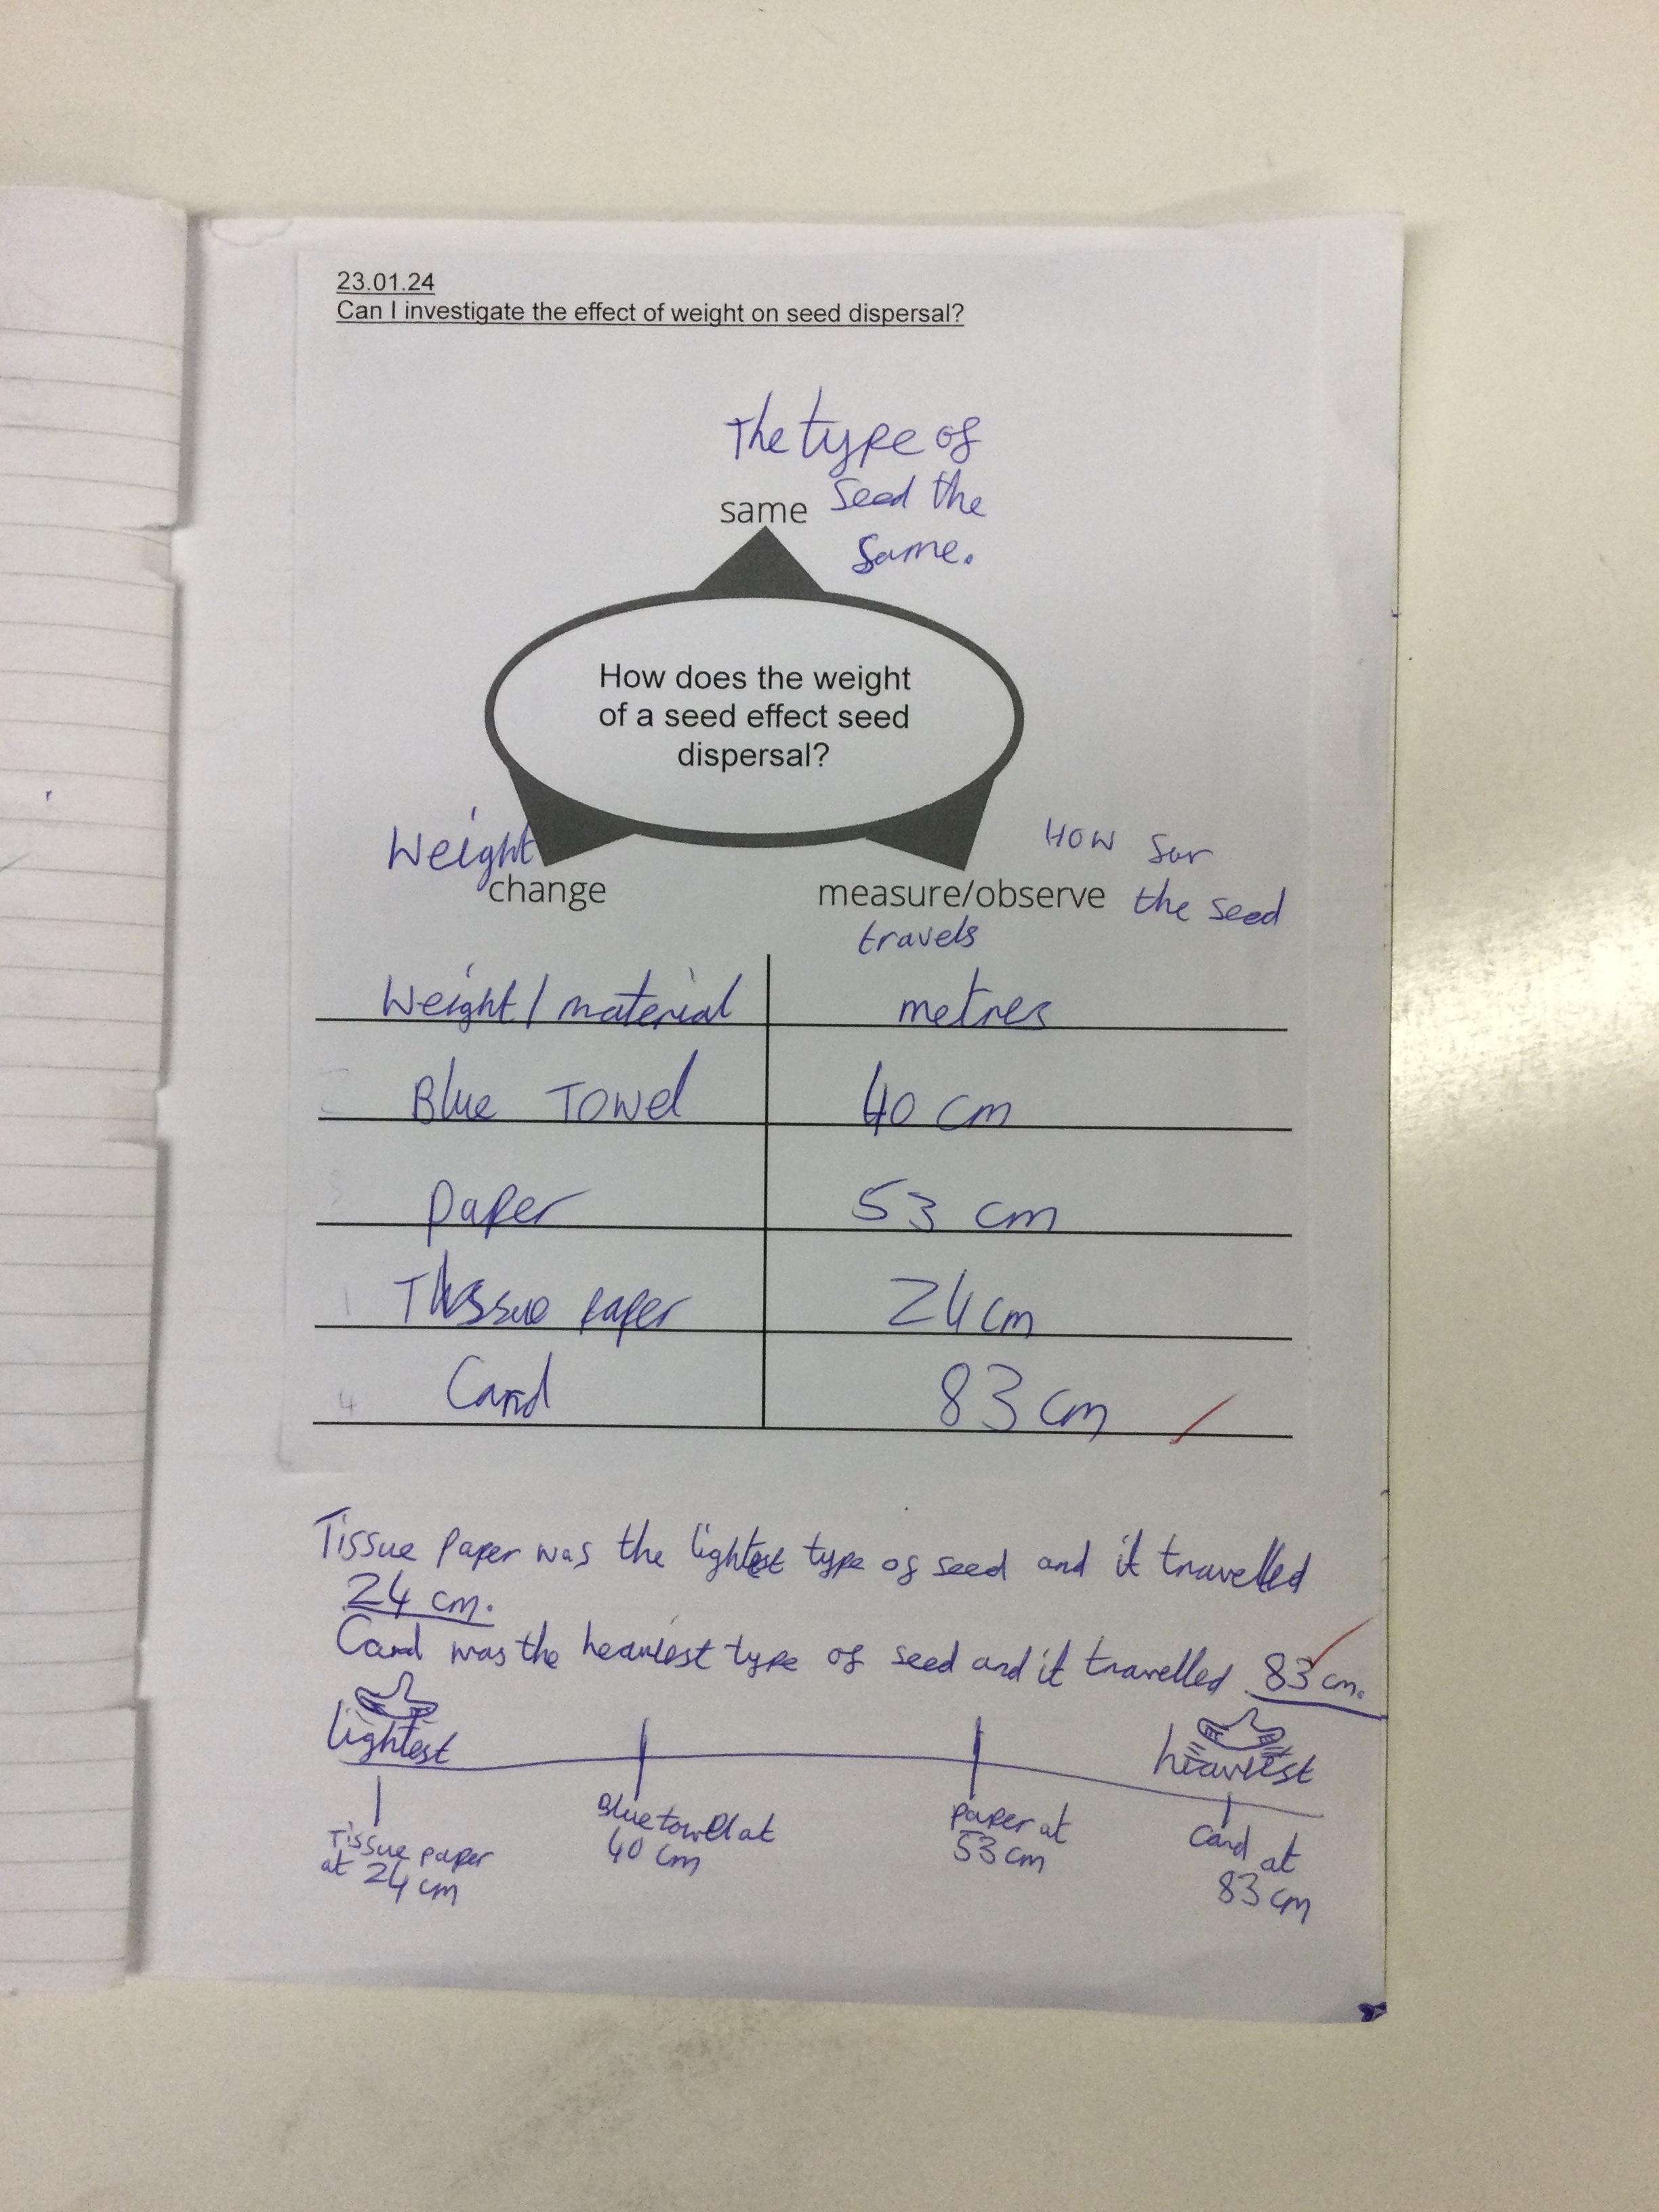 23.01.24
Can I investigate the effect of weight on seed dispersal?
The type of
same seed the
same.
How does the weight
of a seed effect seed
dispersal?
Weight
change
How far
measure/observe the seed
travels
Weight / material metres
2 Blue Towel 40 cm
3 paper 53 cm
1 Tissue paper 24 cm
4 Card 83 cm
Tissue Paper was the lightest type of seed and it travelled
24 cm.
Card was the heaviest type of seed and it travelled 83 cm.
lightest heaviest
Tissue paper
at 24 cm
Blue towel at
40 cm
paper at
53 cm
Card at
83 cm